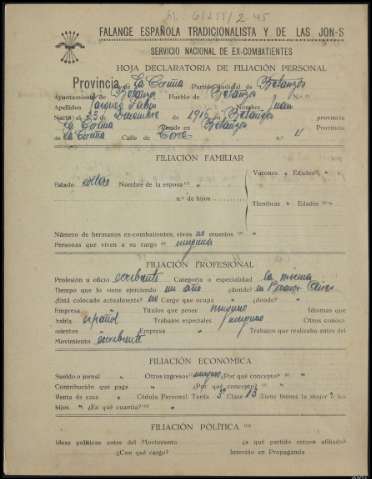 FALANGE ESPAÑOLA TRADICIONALISTA Y DE LAS JON-S
SERVICIO NACIONAL DE EX-COMBATIENTES
HOJA DECLARATORIA DE FILIACIÓN PERSONAL
Provincia de La Coruña Partido Judicial de Betanzos
Ayuntamiento de Betanzos Pueblo de Betanzos
Apellidos Nombre Juan
Nació el 23 Diciembre de 1916 Betanzos provincia
La Coruña Reside en Betanzos Provincia
La Coruña Calle de n.º 11
FILIACIÓN FAMILIAR
Estado soltero Nombre de la esposa " Varones " Edades "
n.º de hijos "
Hembras " Edades "
Número de hermanos ex-combatientes, vivos no muertos "
Personas que viven a su cargo ninguna
FILIACIÓN PROFESIONAL
Profesión u oficio escribiente Categoría o especialidad la misma
Tiempo que lo viene ejerciendo un año ¿dónde? en
¿Está colocado actualmente? Cargo que ocupa " ¿dónde? "
Empresa " Títulos que posee ninguno Idiomas que
habla español Trabajos especiales ninguno Otros conoci-
mientos " Empresa " Trabajos que realizaba antes del
Movimiento escribiente
FILIACIÓN ECONÓMICA
Sueldo o jornal " Otros ingresos ninguno ¿Por qué concepto? "
Contribución que paga " ¿Por qué concepto? "
Renta de casa " Cédula Personal Tarifa 3ª Clase 13
hijos " ¿En qué cuantía? "
FILIACIÓN POLÍTICA
Ideas políticas antes del Movimiento ¿a qué partido estuvo afiliado?
¿Con qué cargo? Intervino en Propaganda